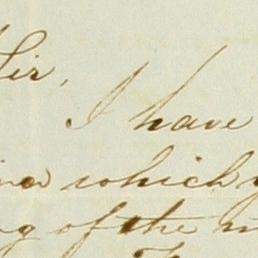 Sir,
I have
which
of the